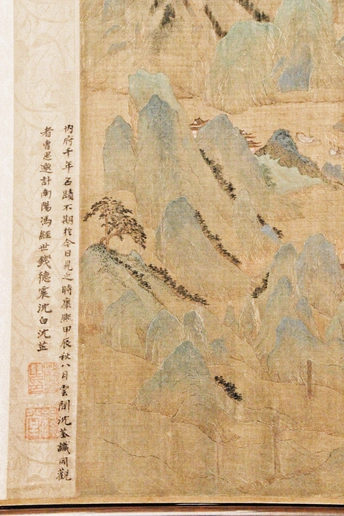 内府千年名蹟不期於今日見之時康熙甲辰秋八月雲間沈荃識同觀
者曹思邈計南陽馮經世錢德震沈白沈荃